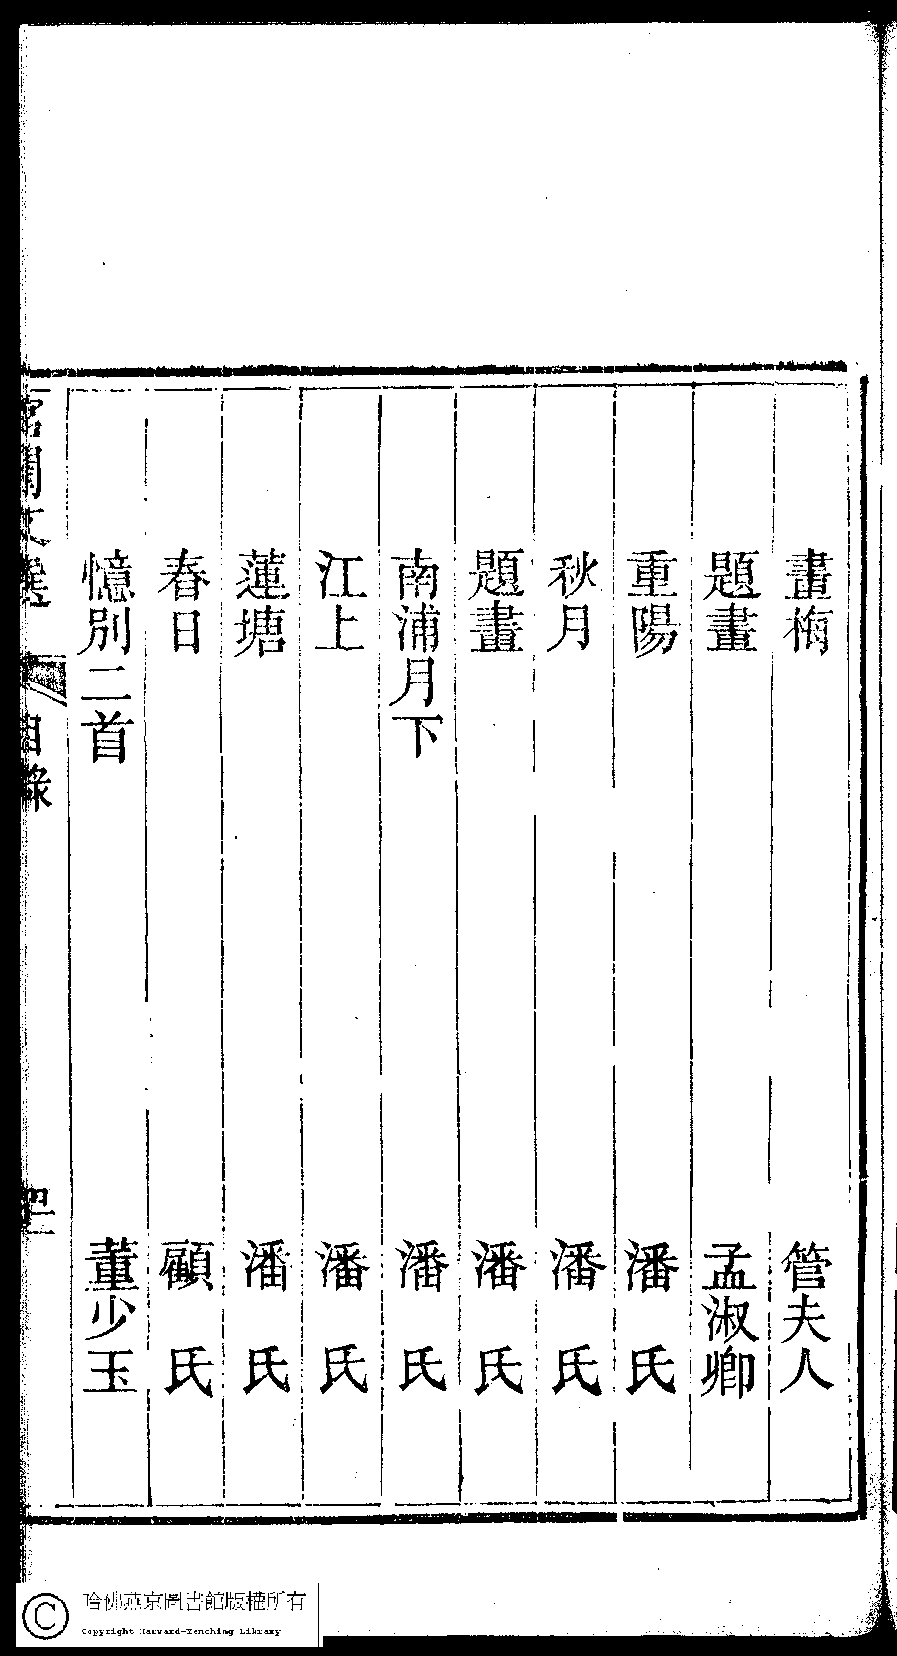 畫梅 管夫人
題畫 孟淑卿
重陽 潘氏
秋月 潘氏
題畫 潘氏
南浦月下 潘氏
江上 潘氏
蓮塘 潘氏
春日 顧氏
憶別二首 董少玉
宮閨文選 目錄
哈佛燕京圖書館版權所有
Copyright Harvard-Yenching Library